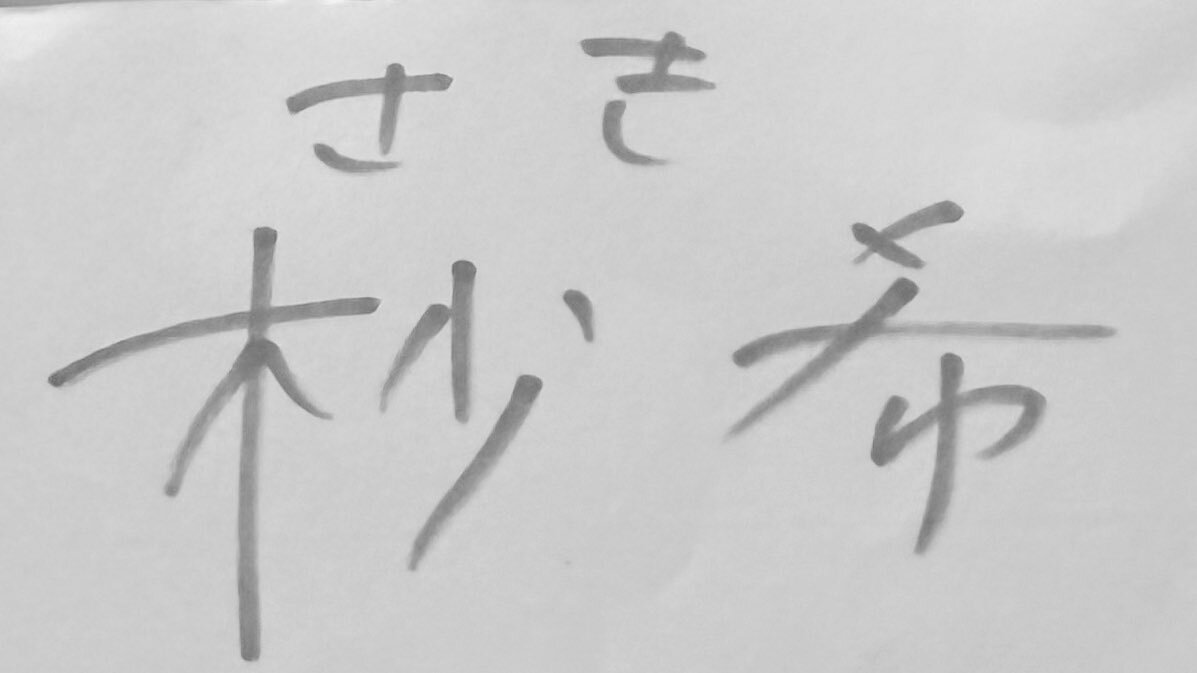 さき
杪希